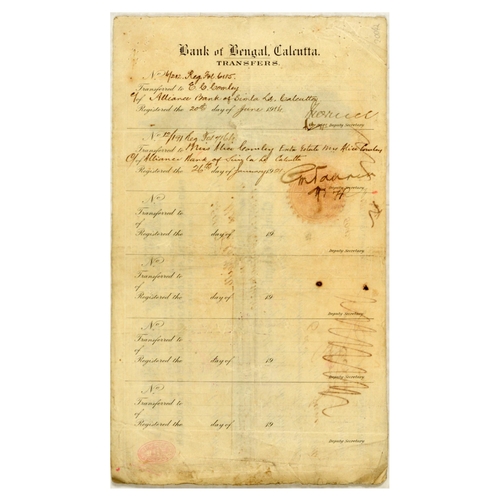 Bank of Bengal, Calcutta.
TRANSFERS.
No Reg Fol 6115.
Transferred to E. C. Cowley
of Alliance Bank of Simla Ld. Calcutta
Registered the 20th day of June 1916
Deputy Secretary
No Reg Fol
Transferred to Miss Alice Cowley
C/o Alliance Bank of Simla Ld Calcutta
Registered the 26th day of January 19
Deputy Secretary
No
Transferred to
of
Registered the day of 19
Deputy Secretary
No
Transferred to
of
Registered the day of 19
Deputy Secretary
No
Transferred to
of
Registered the day of 19
Deputy Secretary
No
Transferred to
of
Registered the day of 19
Deputy Secretary